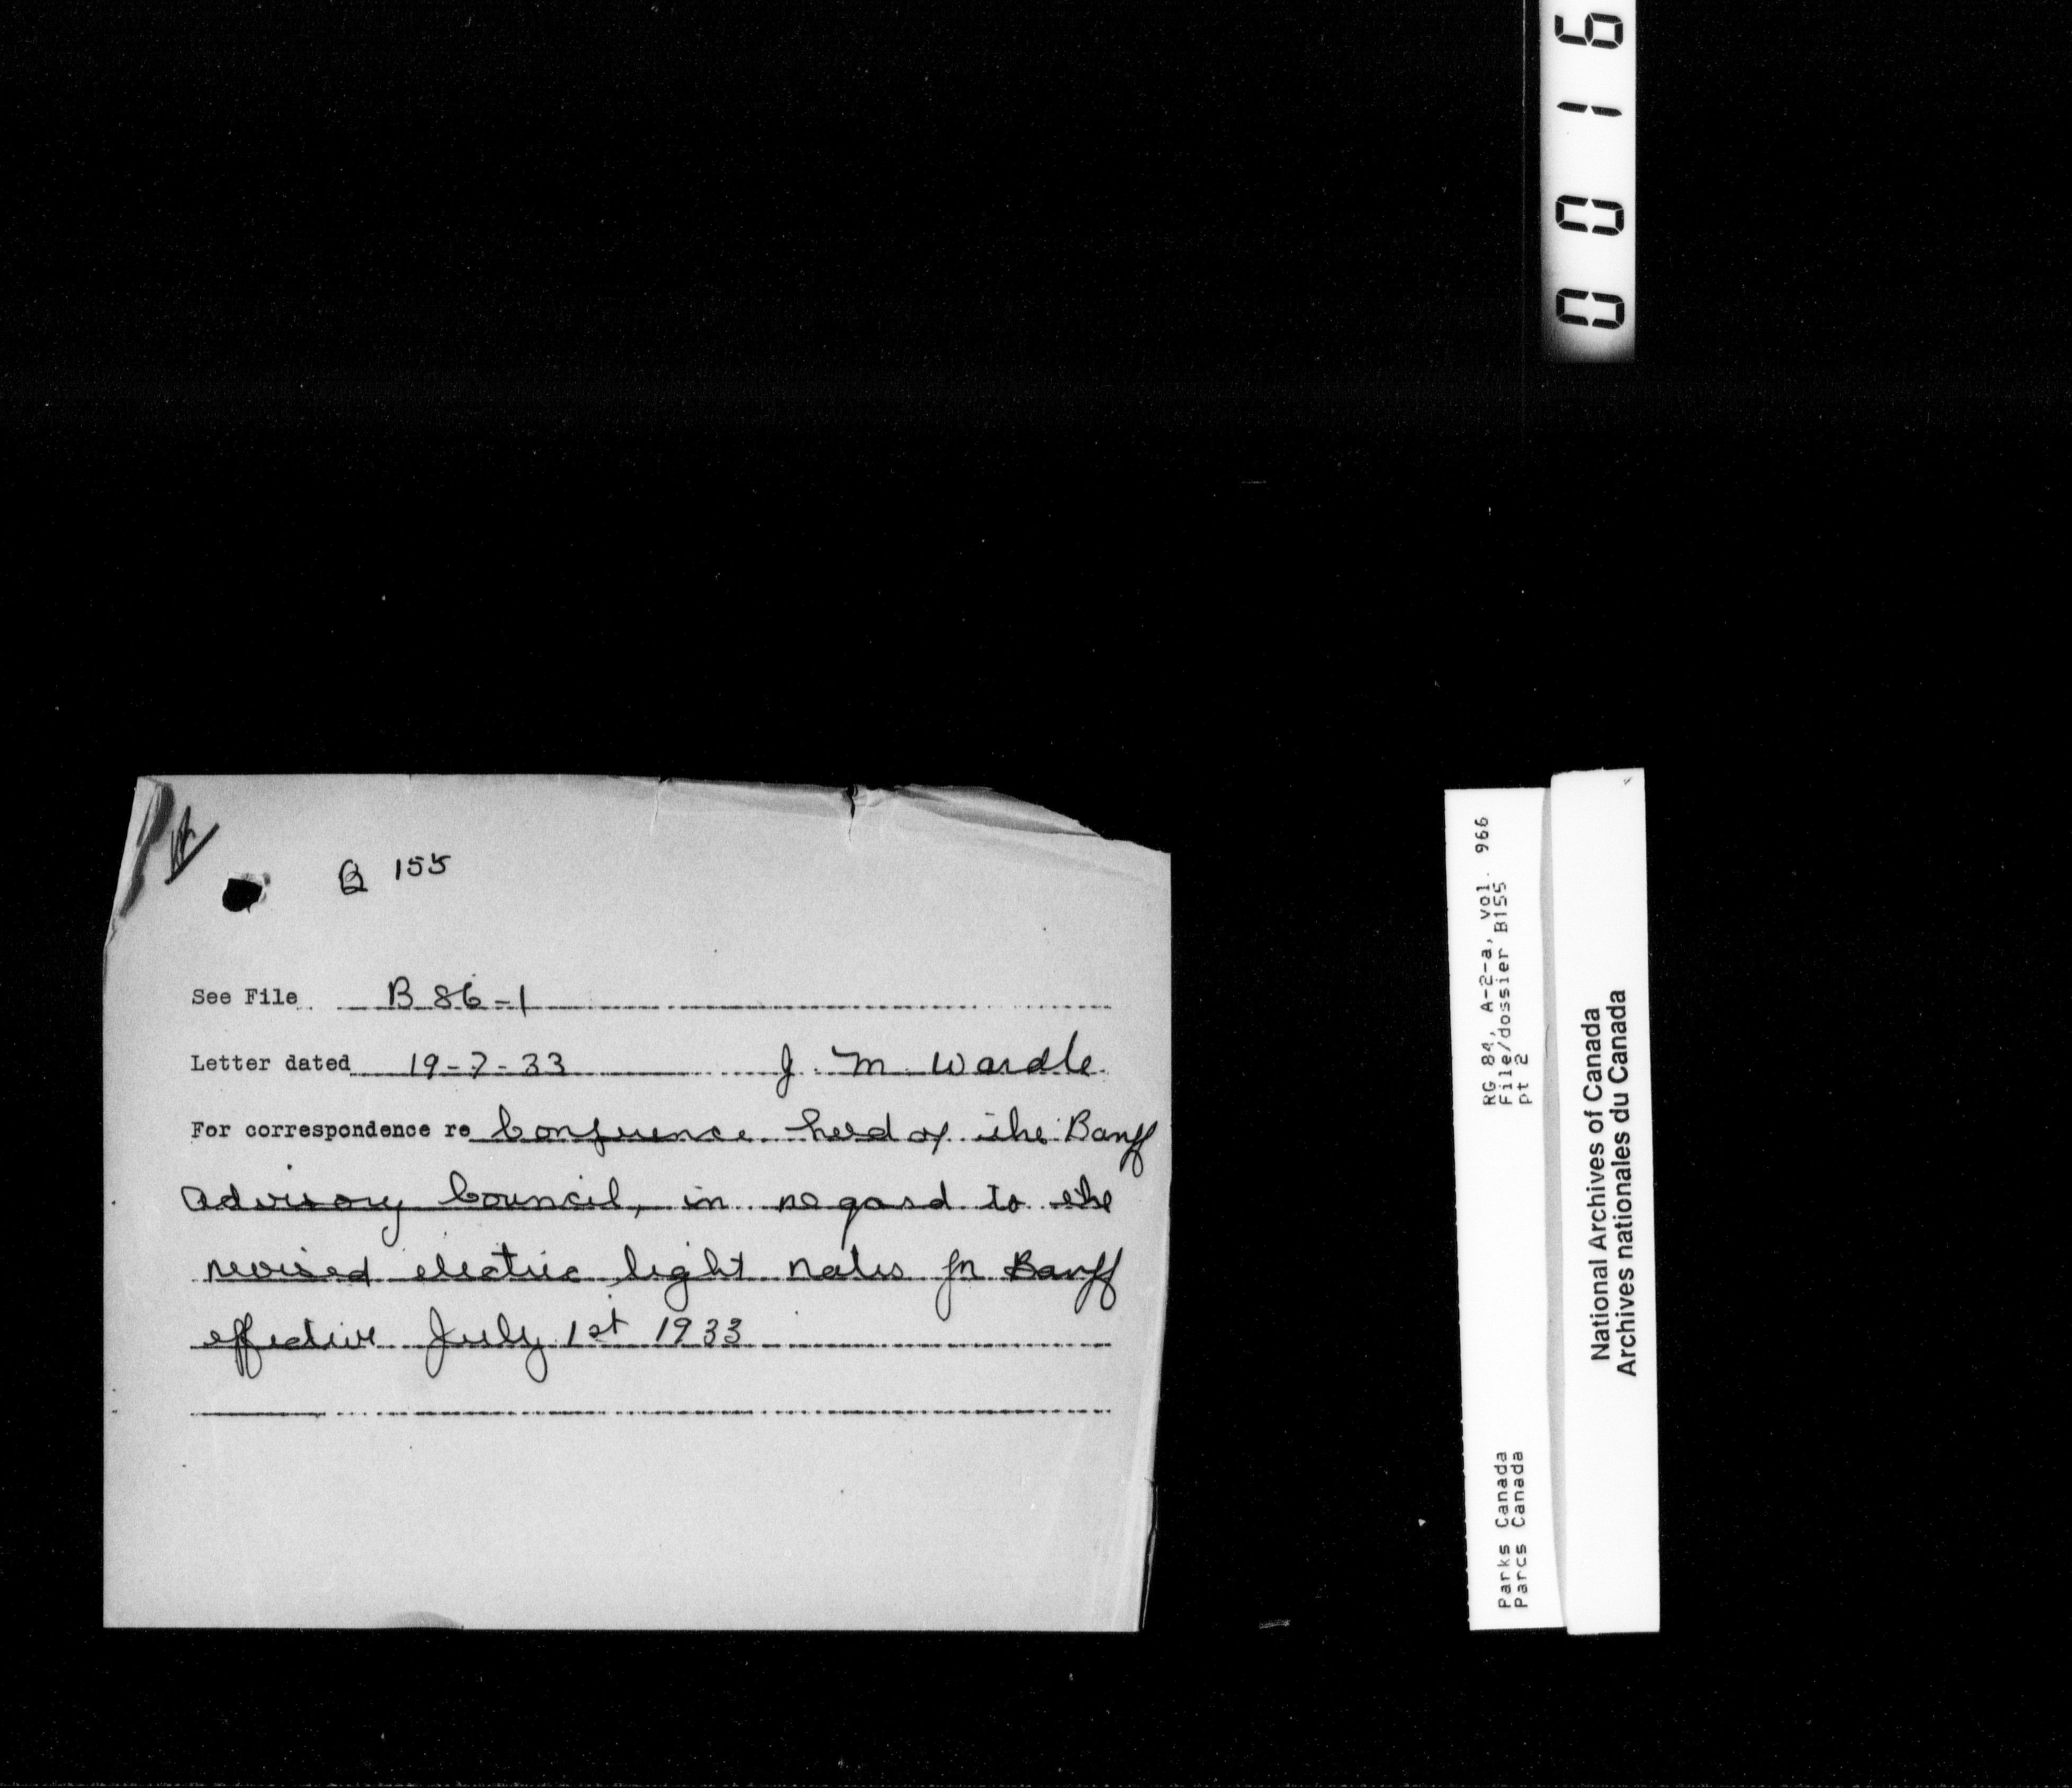 0016
B 155
See File B 86-1
Letter dated 19-7-33 J. M. Wardle
For correspondence re Conference held of the Banff
Advisory Council, in regard to the
revised electric light rates for Banff
effective July 1st 1933
RG 84, A-2-a, vol. 966
File/dossier B155
pt 2
Parks Canada
Parcs Canada
National Archives of Canada
Archives nationales du Canada